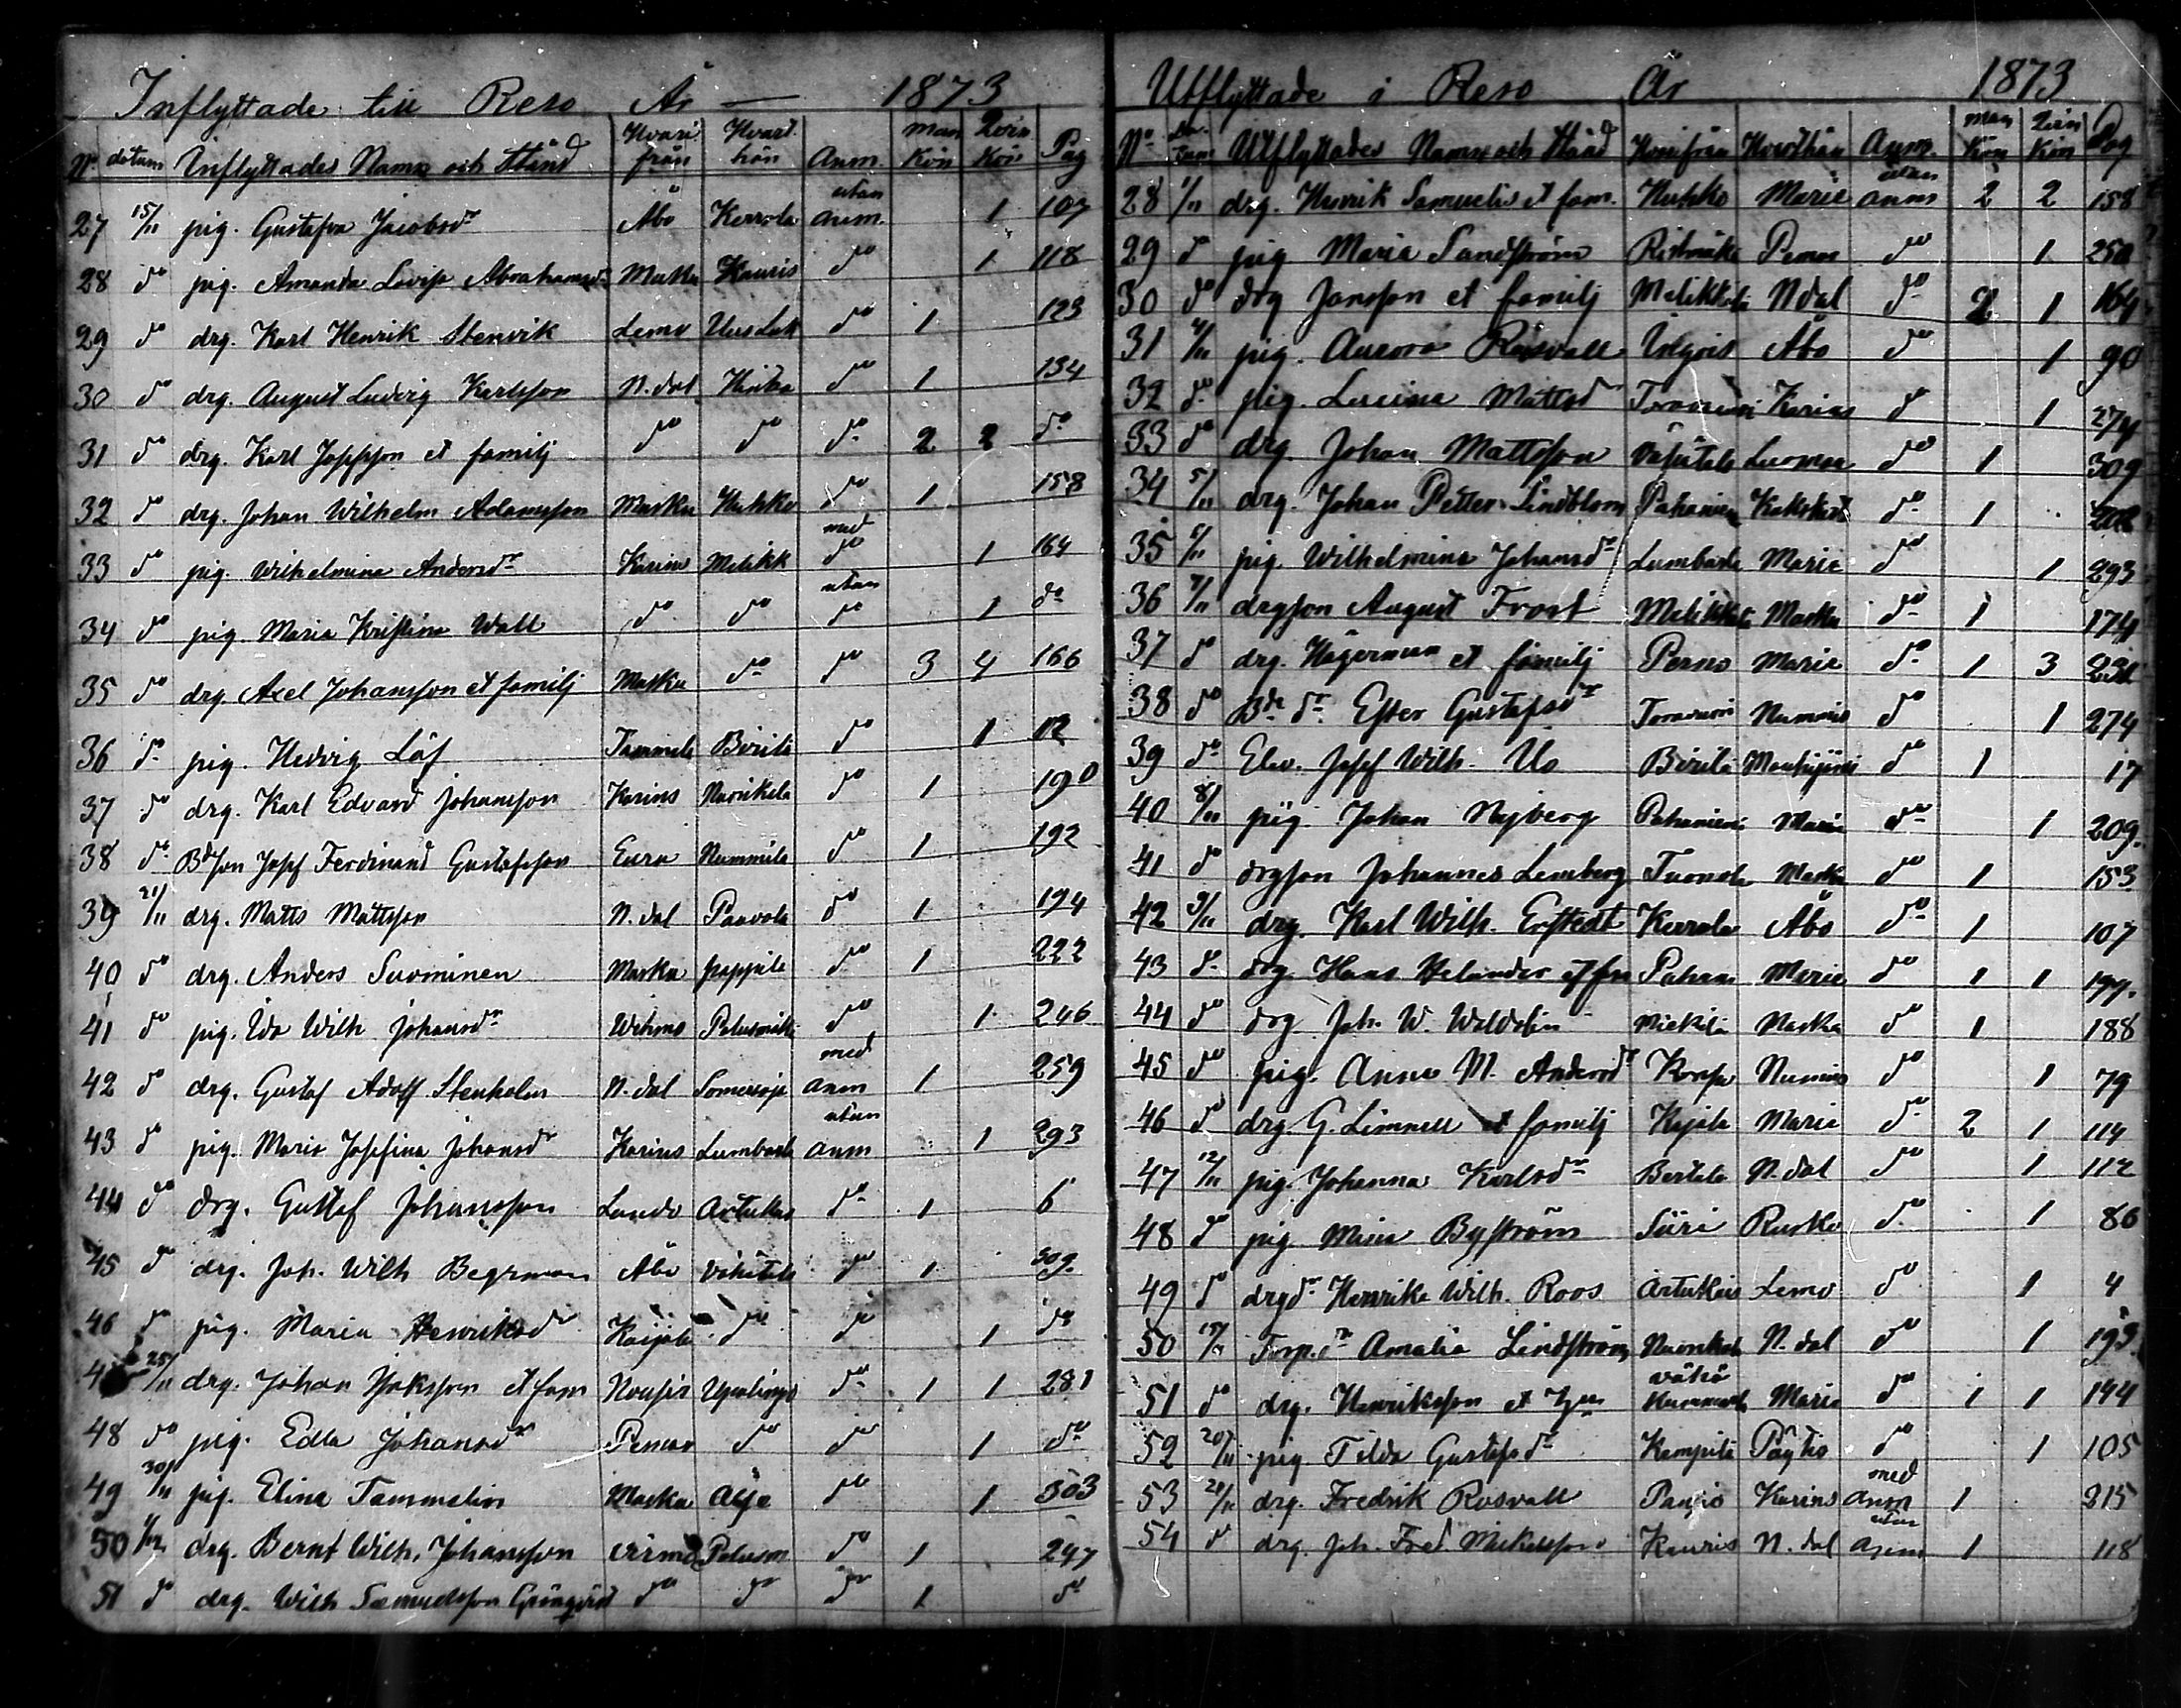 Inflyttade till Reso År — 1873
No datum Inflyttades Namn och Stånd Hvari från Hvart hän Anm. man Kön Qvin Kön Pag
27 15/11 pig. Gustafva Jacobsdr Åbo Kerrola utan anm. 1 107
28 do pig. Amanda Lovisa Abrahamsdr Masku Kauris do 1 118
29 do drg. Karl Henrik Stenvik Lemo do 1 123
30 do drg. August Ludvig Karlsson N. dal do 1 134
31 do drg. Karl Josefsson et familj do do do 2 2 do
32 do drg. Johan Wilhelm Adamsson Masku Huhko do 1 158
33 do pig. Wilhelmina Andersdr Karins Melikk med do 1 164
34 do pig. Maria Kristina Wall do do utan do 1 do
35 do drg. Axel Johansson et familj Masku do do 3 4 166
36 do pig. Hedvig Löf Tammela Birila do 1 12
37 do drg. Karl Edvard Johansson Karins Navrikela do 1 190
38 do Bdeson Josef Ferdinand Gustafsson Eura Nummila do 1 192
39 21/11 drg. Matts Mattsson N. dal Paavola do 1 194
40 do drg. Anders Suominen Masku Pappila do 1 222
41 do pig. Ida Wilh Johansdr Wehmo do 1 246
42 do drg. Gustaf Adolf Stenholm N. dal Somersoja med anm 1 259
43 do pig. Maria Josefina Johansdr Karins Lumbarla utan anm 1 293
44 do drg. Gustaf Johansson Lundo Artukas do 1 6
45 do drg. Joh. Wilh Begrman Åbo Vähätalo do 1 309
46 do pig. Maria Henriksdr Kaijala do do 1 do
4 25/11 drg. Johan Isaksson et fam Nousis Upalingo do 1 1 281
48 do pig. Edla Johansdr Pemar do do 1 do
49 30/11 pig. Elina Tammelin Masku do 1 303
50 1/12 drg. Bernt Wilh. Johansson Virmo do 1 247
51 do drg. Wilh Samuelsson Grönqvist do do do 1 do
Utflyttade i Reso År 1873
No Datum Utflyttades Namn och Stånd Hvarifrån Hvarthän Anm. man Kön Qvin Kön Pag
28 1/11 drg. Henrik Samuelss et fam. Huhko Marie utan anm 2 2 158
29 do pig Maria Sandström Ristimäki Pemar do 1 250
30 do drg Jansson et familj Melikkala N dal do 2 1 164
31 4/11 pig. Aurora Rosvall Ihlgois Åbo do 1 90
32 do pig. Lucina Mattsd Toravuori Karins do 1 274
33 do drg. Johan Mattsson Väihätalo do 1 309
34 5/11 drg. Johan Petter Lindblom Pahaniemi Kakskerta do 1
35 6/11 pig. Wilhelmina Johansdr Lumbarla Marie do 1 293
36 7/11 drgson August Frost Melikkala Masku do 1 174
37 do drg. Hägerman et familj Perno Marie do 1 3
38 do Bde dr Ester Gustafsdr Toravuori Nummis do 1 274
39 do Elev. Josef Wilh. Us Birila do 1 17
40 8/11 pig. Johan Nyberg Pahaniemi Marie do 1 209.
41 do drgson Johannes Lemberg Tuonela Masku do 1 153
42 9/11 drg. Karl Wilh. Erstedt Kerrola Åbo do 1 107
43 do drg. Hans Helander et fru Pahan Marie do 1 1 199.
44 do drg Joh. W. Waldolin Niekila Masku do 1 188
45 do pig. Anna M. Andersdr Korpo Nummis do 1 79
46 do drg. G. Limnell et familj Kajala Marie do 2 1 114
47 12/11 pig. Johanna Karlsdr Bertila N. dal do 1 112
48 do pig Mina Byström Siiri Rusko do 1 86
49 do drgdr Henrika Wilh. Roos Artukais Lemo do 1 4
50 15/11 Torp.dr Amalia Lindström Navrikela N. dal do 1 193
51 do drg. Henriksson et Hu vähä Nummila Marie do 1 1 144
52 20/11 pig Tilda Gustafsdr Kampila Pöytis do 1 105
53 21/11 drg. Fredrik Rosvall Pansio Karins med anm 1 215
54 do drg. Joh. Fred Mickelsson Kauris N. dal utan anm 1 118